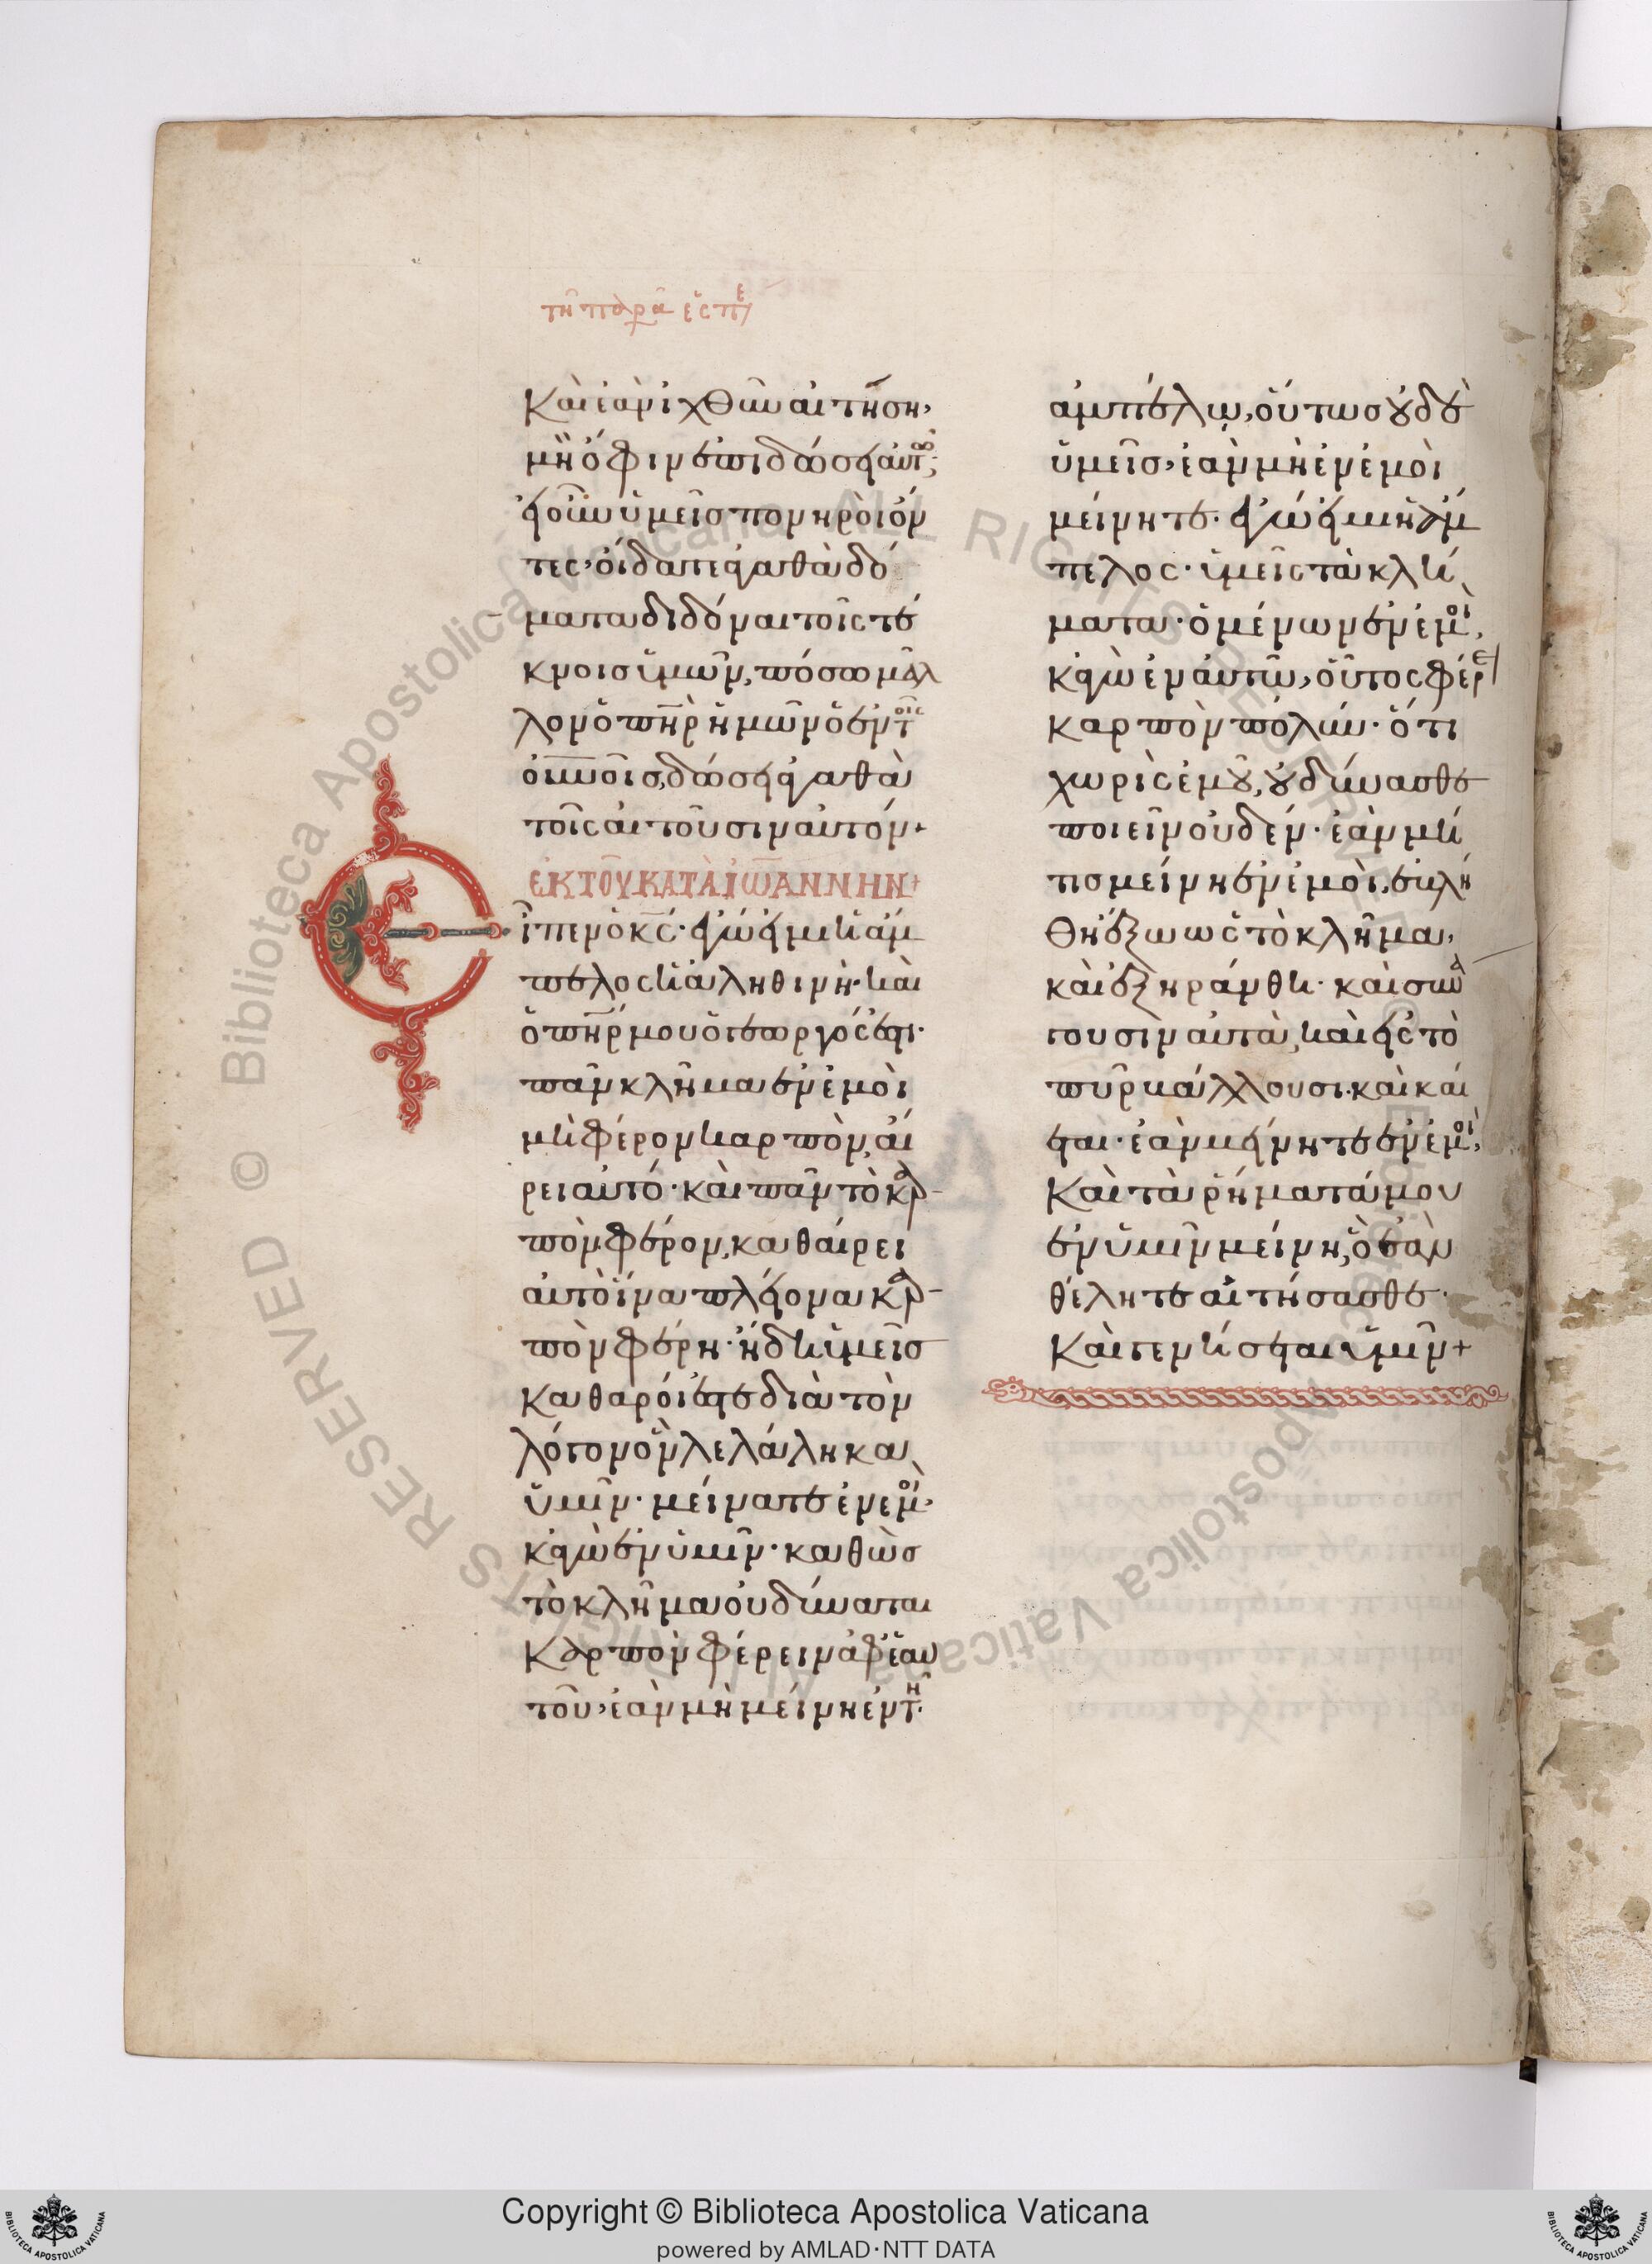 τῆ παρα ἑσπε
Καὶ ἐὰν ἰχθὺν αἰτήση,
μὴ ὄφιν ἐπιδώσει αὐτῶ;
εἰ οὖν ὑμεῖς πονηροὶ ὄν
τες, οἴδατε ἀγαθὰ δό
ματα διδόναι τοῖς τέ
κνοις ὑμῶν, πόσω μᾶλ
λον ὁ πηρ ἡμῶν ὁ ἐν τοῖς
οὐνοῖς, δώσει ἀγαθὰ
τοῖς αἰτοῦσιν αὐτόν+
ἐκ τοῦ κατὰ ἰωαννην+
Εἶπεν ὁ κς· ἐγώ εἰμι ἡ ἄμ
πελος ἡ ἀληθινή· καὶ
ὁ πηρ μου ὁ γεωργός ἐστι·
πᾶν κλῆμα ἐν ἐμοὶ
μὴ φέρον καρπὸν, αἴ
ρει αὐτό· καὶ πᾶν τὸ καρ
πὸν φέρον, καθαίρει
αὐτὸ ἵνα πλείονα καρ
πὸν φέρη· ἤδη ὑμεῖς
καθαροί ἐστε διὰ τὸν
λόγον ὃν λελάληκα
ὑμῖν· μείνατε ἐν ἐμοὶ,
κἀγὼ ἐν ὑμῖν· καθὼς
τὸ κλῆμα οὐ δύναται
καρπὸν φέρειν ἀφ' ἑαυ
τοῦ, ἐὰν μὴ μείνη ἐν τῆ
ἀμπέλω, οὕτως οὐδὲ
ὑμεῖς, ἐὰν μὴ ἐν ἐμοὶ
μείνητε· ἐγώ εἰμι ἡ ἄμ
πελος· ὑμεῖς τὰ κλή
ματα· ὁ μένων ἐν ἐμοὶ,
κἀγὼ ἐν αὐτῶ, οὗτος φέρει
καρπὸν πολύν· ὅτι
χωρὶς ἐμοῦ, οὐ δύνασθε
ποιεῖν οὐδέν· ἐὰν μή
τις μείνη ἐν ἐμοὶ, ἐβλή
θη ἔξω ὡς τὸ κλῆμα,
καὶ ἐξηράνθη· καὶ συνά
γουσιν αὐτὰ, καὶ εἰς τὸ
πῦρ βάλλουσι· καὶ καί
εται· ἐὰν μείνητε ἐν ἐμοὶ,
Καὶ τὰ ῥήματά μου
ἐν ὑμῖν μείνη, ὃ ἐὰν
θέλητε αἰτήσασθε·
Καὶ γενήσεται ὑμῖν+
Copyright © Biblioteca Apostolica Vaticana
powered by AMLAD·NTT DATA